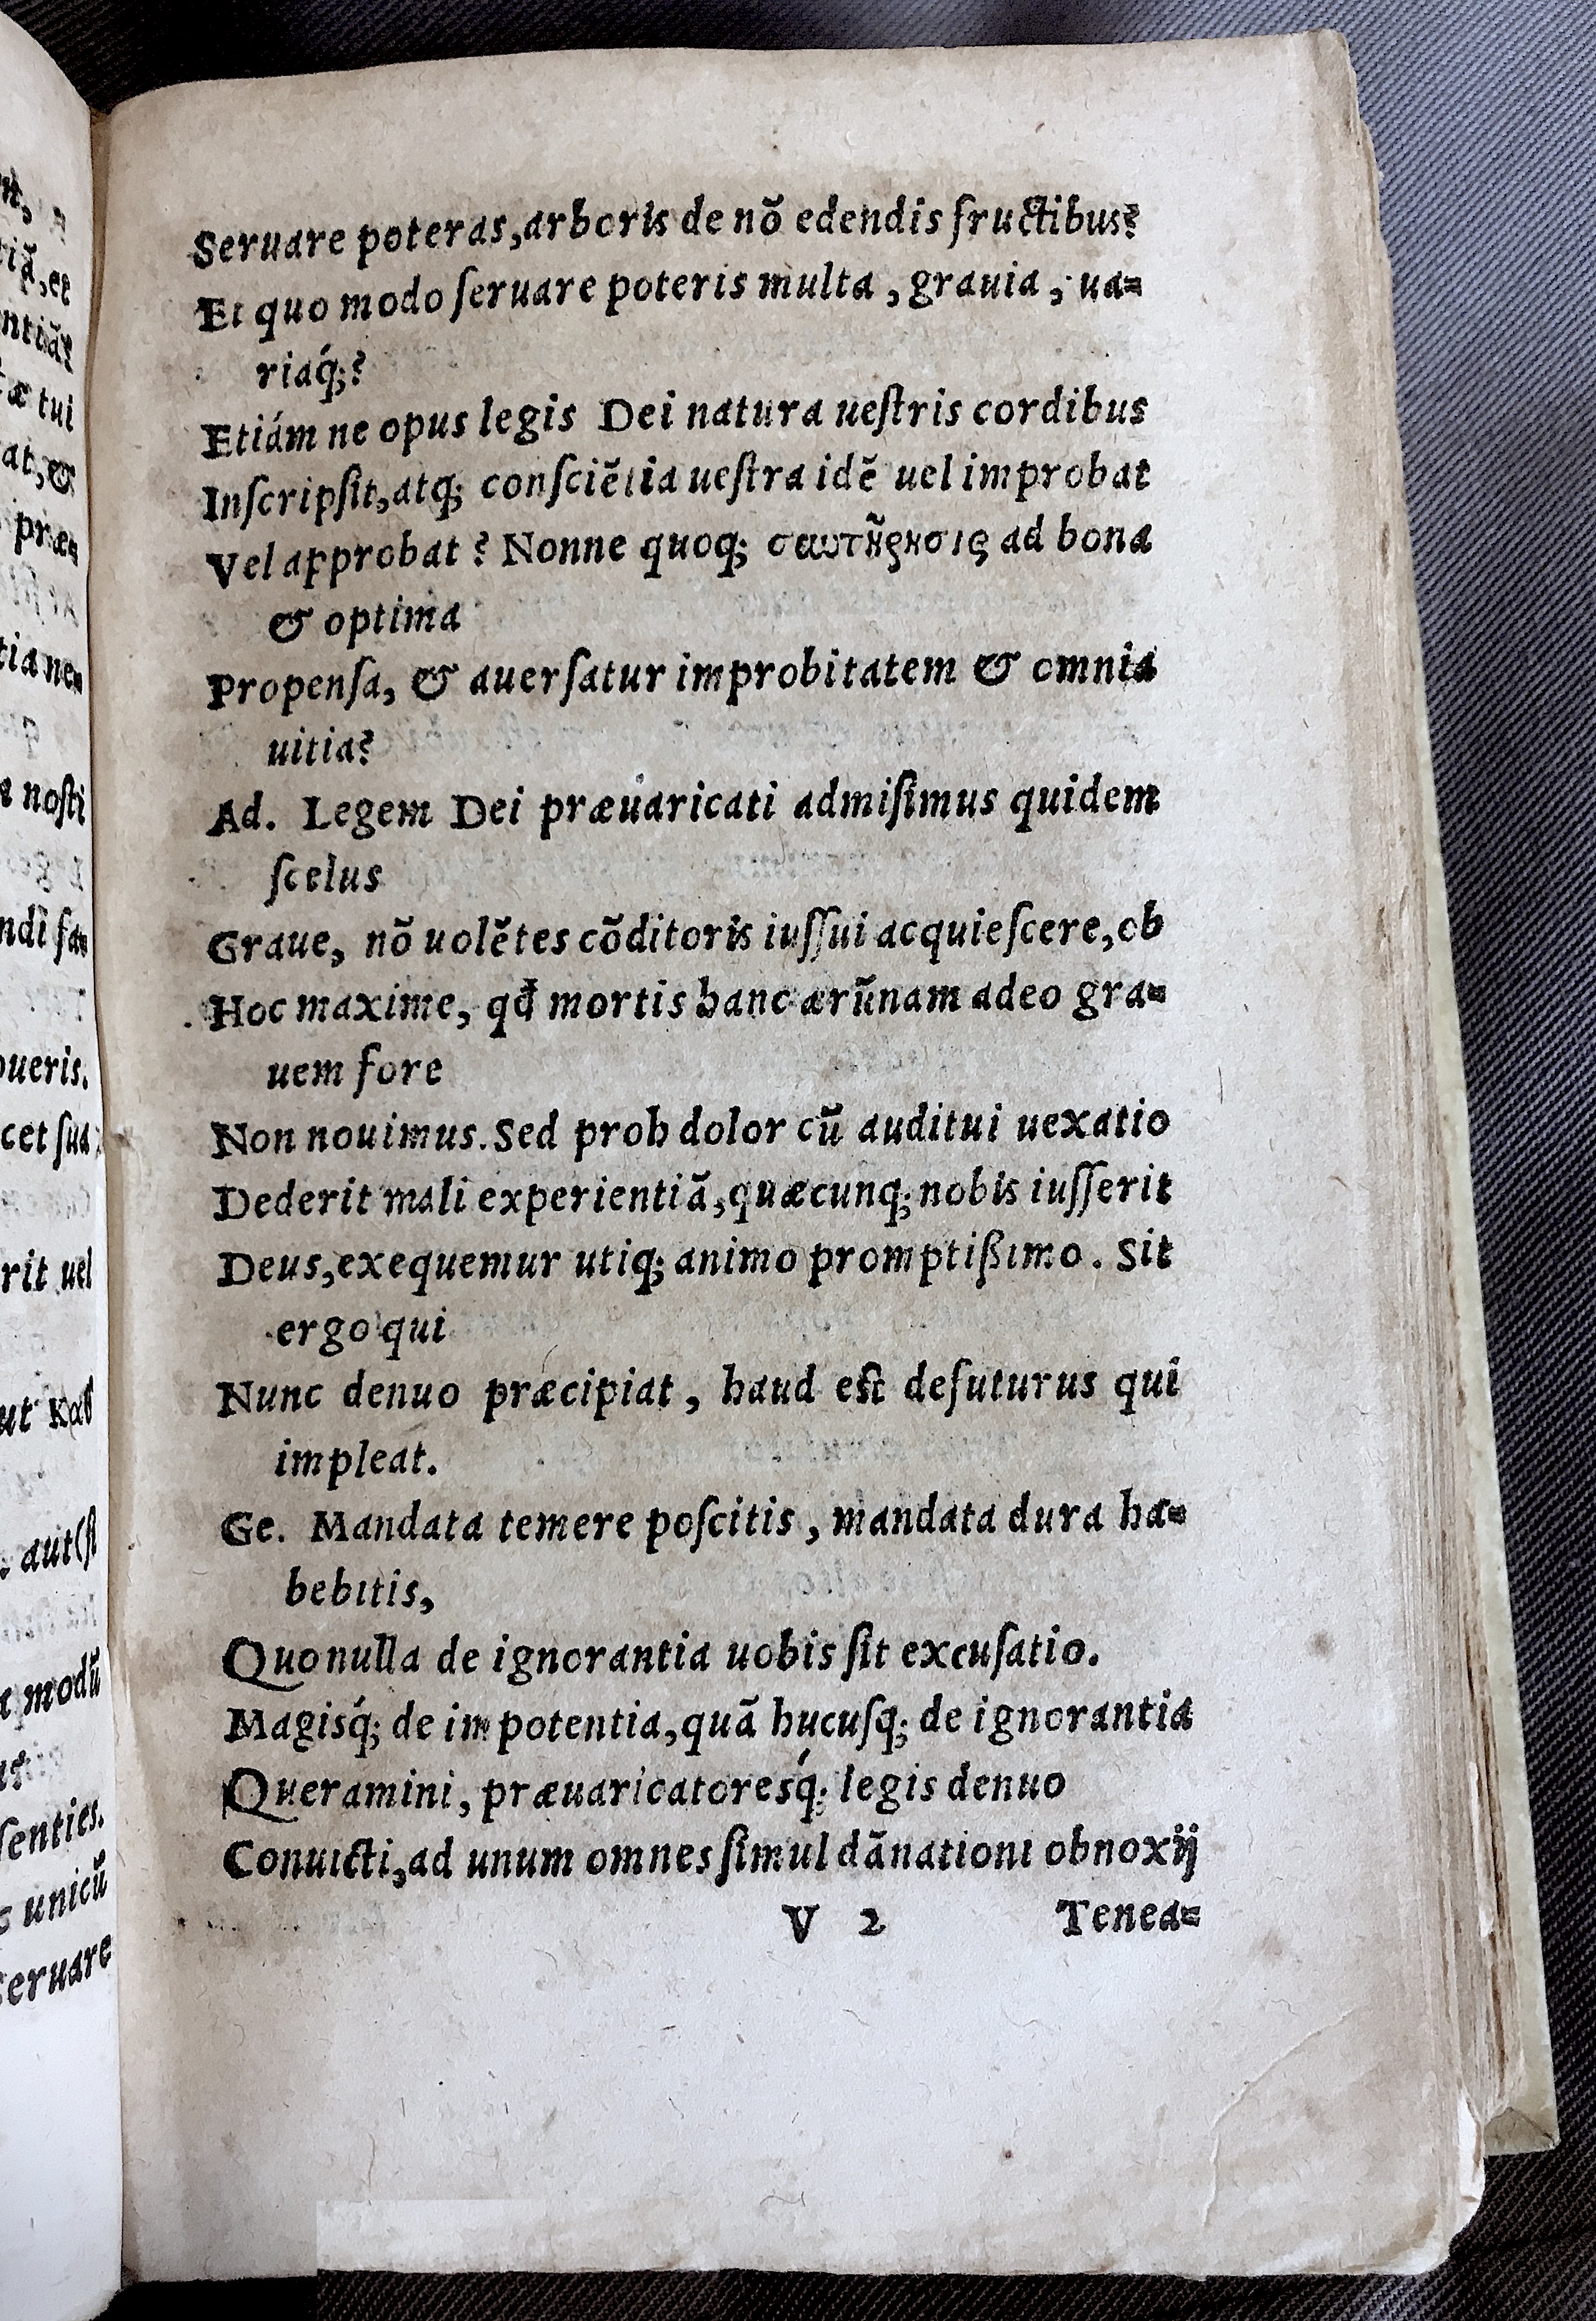 Seruare poteras, arboris de nõ edendis fructibus?
Et quo modo ſeruare poteris multa, grauia, ua=
riaq́;?
Etiám ne opus legis Dei natura ueſtris cordibus
Inſcripſit, atq; conſciẽtia ueſtra idẽ uel improbat
Vel approbat? Nonne quoq; σαυτή̃ρησις ad bona
& optima
Propenſa, & auerſatur improbitatem & omnia
uitia?
Ad. Legem Dei præuaricati admiſimus quidem
ſcelus
Graue, nõ uolẽtes cõditoris iuſſui acquieſcere, ob
Hoc maxime, qđ mortis hanc ærũnam adeo gra=
uem fore
Non nouimus. Sed proh dolor cũ auditui uexatio
Dederit mali experientiã, quæcunq; nobis iuſſerit
Deus, exequemur utiq; animo promptißimo. Sit
ergo qui
Nunc denuo præcipiat, haud eſt defuturus qui
impleat.
Ge. Mandata temere poſcitis, mandata dura ha=
bebitis,
Quo nulla de ignorantia uobis ſit excuſatio.
Magisq́; de impotentia, quã hucuſq; de ignorantia
Queramini, præuaricatoresq́; legis denuo
Conuicti, ad unum omnes ſimul dãnationi obnoxij
V 2 Tenea=